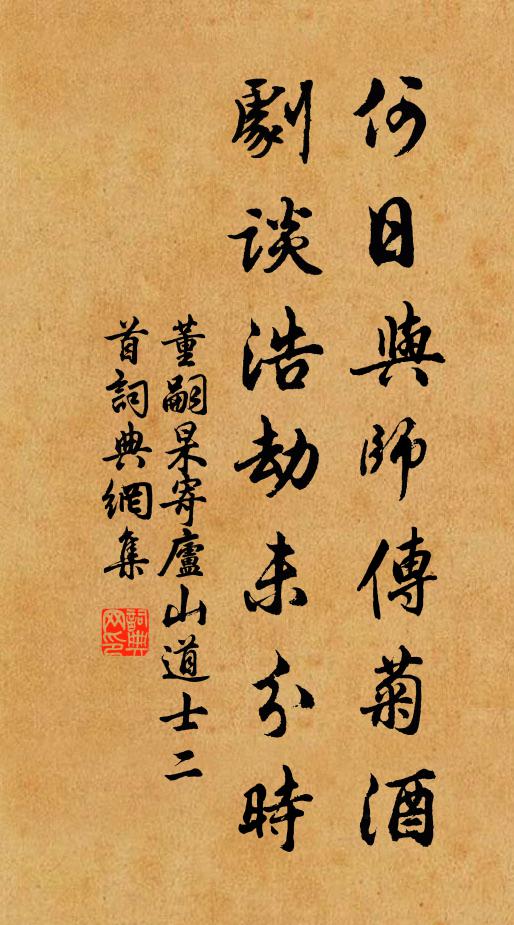 何日與師傳菊酒
劇談浩劫未分時
董嗣杲寄廬山道士二
首詞典網集
詞典网印